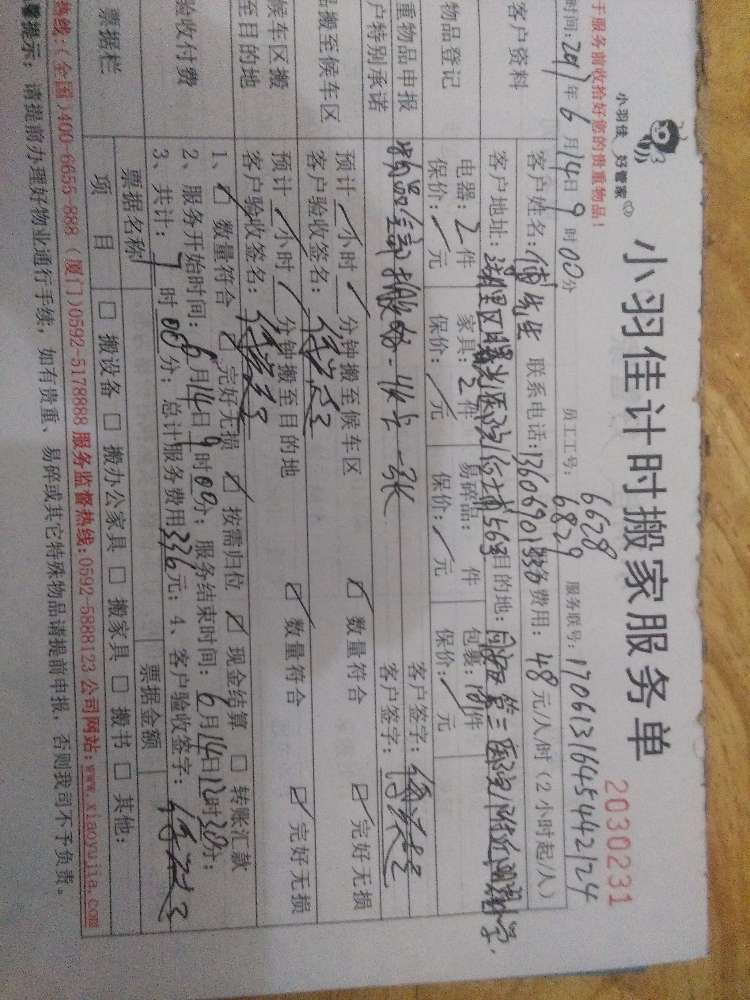 小羽佳 好管家
小羽佳计时搬家服务单
2030231
于服务前收拾好您的贵重物品!
时间:2017年6月14日9时00分
员工工号:6628
6829
服务联号:17061316454442124
客户资料
客户姓名:傅先生 联系电话:
费用:48元/人/时(2小时起/人)
客户地址:湖里区 目的地:同安区第三医院附近
物品登记
电器:2件 家具:2件 易碎品: 件 包裹: 件
保价: 元 保价: 元 保价: 元 保价: 元
重物品申报
户特别承诺
客户签字:
客户签字:
品搬至候车区
预计 小时 分钟搬至候车区 数量符合 完好无损
客户验收签名:
候车区搬
至目的地
预计 小时 分钟搬至目的地 数量符合 完好无损
客户验收签名:
验收付费
1、 数量符合 完好无损 按需归位 现金结算 转账汇款
2、服务开始时间:6月14日9时00分;服务结束时间:6月14日12时30分;
3、共计: 时00分;总计服务费用336元;4、客户验收签字:
票据栏
票据名称 票据金额
项目 搬设备 搬办公家具 搬家具 搬书 其他:
热线:(全国)400-6655-888 (厦门)0592-5178888 服务监督热线:0592-5888123 公司网站:www.xiaoyujia.com
馨提示:请提前办理好物业通行手续,如有贵重、易碎或其它特殊物品请提前申报,否则我司不予负责。